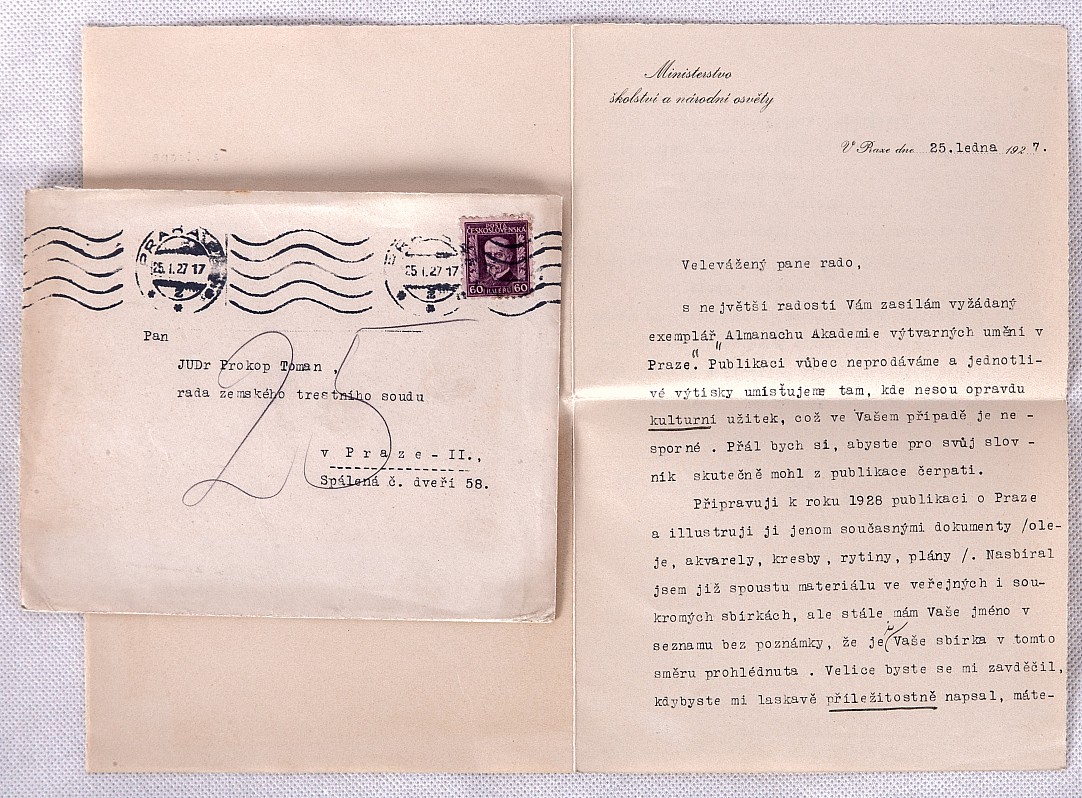 Ministerstvo
školství a národní osvěty
V Praze dne 25.ledna 1927.
Velevážený pane rado,
s největší radostí Vám zasílám vyžádaný
exemplář „Almanachu Akademie výtvarných umění v
Praze“. Publikaci vůbec neprodáváme a jednotli-
vé výtisky umisťujeme tam, kde nesou opravdu
kulturní užitek, což ve Vašem případě je ne -
sporné . Přál bych si, abyste pro svůj slov -
ník skutečně mohl z publikace čerpati.
Připravuji k roku 1928 publikaci o Praze
a illustruji ji jenom současnými dokumenty /ole-
je, akvarely, kresby, rytiny, plány /. Nasbíral
jsem již spoustu materiálu ve veřejných i sou-
kromých sbírkách, ale stále mám Vaše jméno v
seznamu bez poznámky, že je i Vaše sbírka v tomto
směru prohlédnuta . Velice byste se mi zavděčil,
kdybyste mi laskavě příležitostně napsal, máte-
PRAHA
25.I.27 17
2
25.I.27 17
2
POŠTA
ČESKOSLOVENSKÁ
60 HALÉŘŮ 60
Pan
JUDr Prokop Toman ,
rada zemského trestního soudu
v Praze - II.,
Spálená č. dveří 58.
25